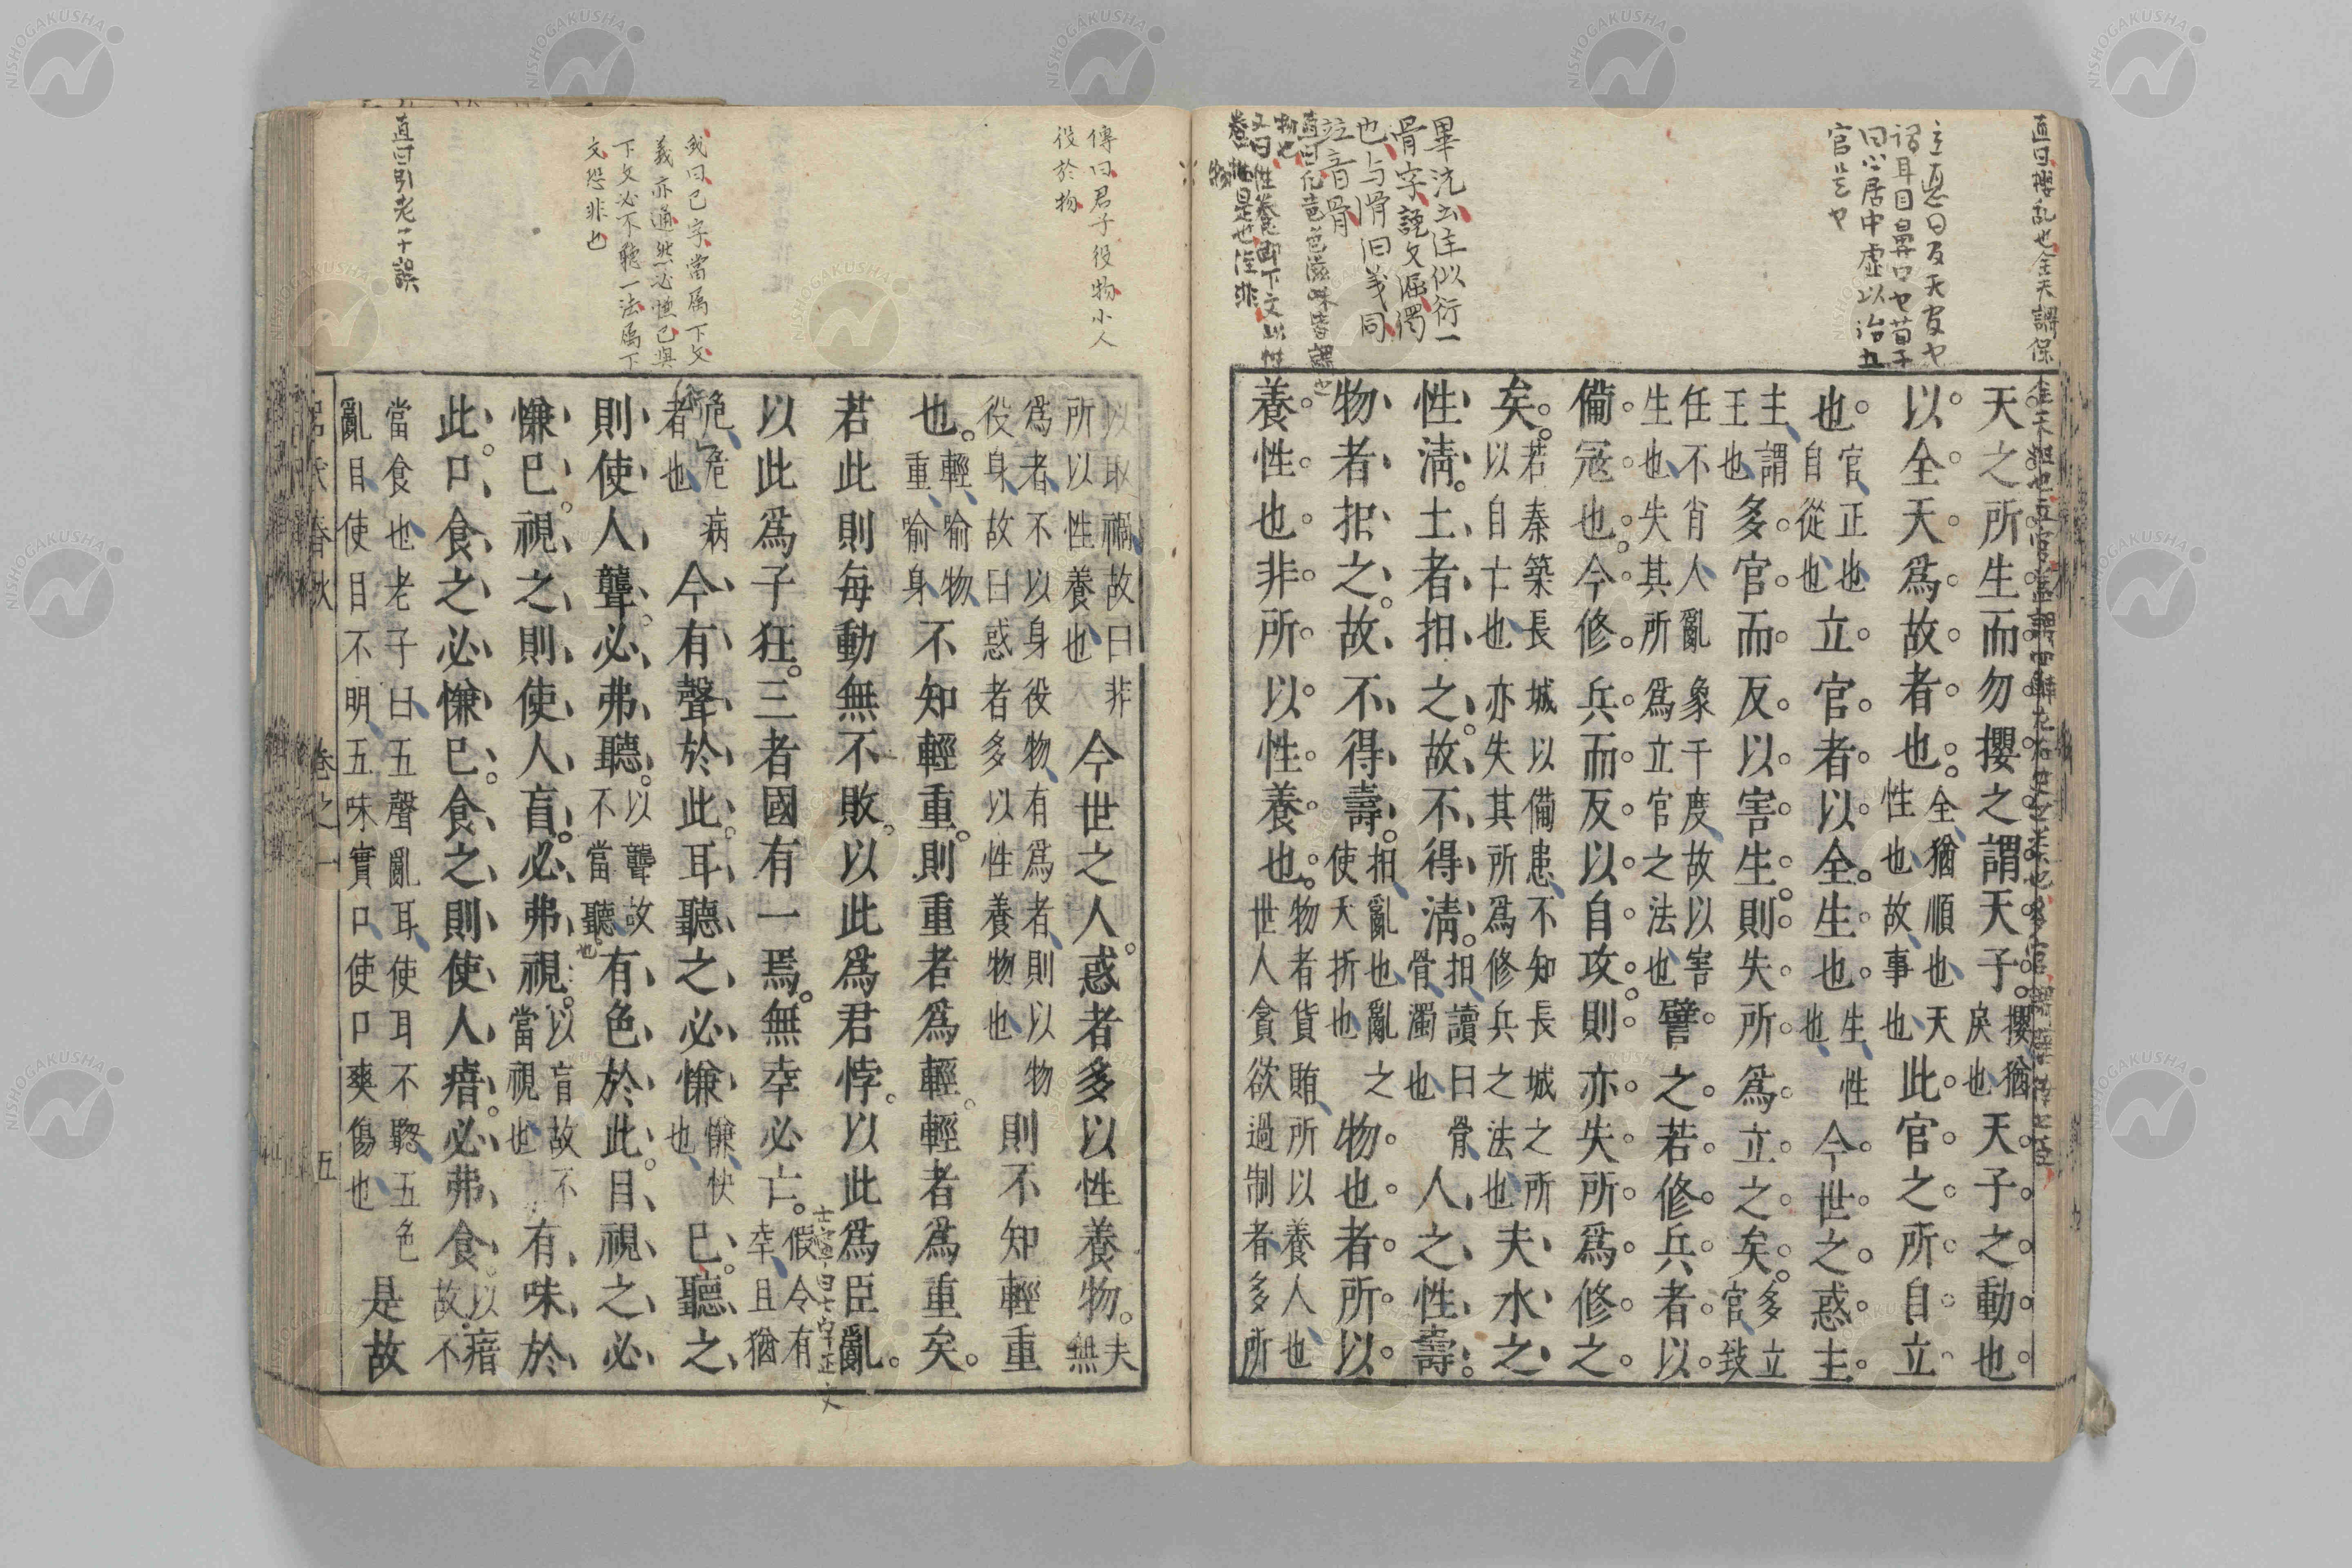 天之所生而勿攖之謂天子攖猶戾也天子之動也
以全天爲故者也全猶順也天性也故事也此官之所自立
也官正也自從也立官者以全生也生性也今世之惑主
主謂王也多官而反以害生則失所爲立之矣多立官致
任不肖人亂象干度故以害生也失其所爲立官之法也譬之若修兵者以
備寇也今修兵而反以自攻則亦失所爲修之
矣若秦築長城以備患不知長城之所以自亡也亦失其所爲修兵之法也夫水之
性清土者抇之故不得清抇讀曰骨骨濁也人之性壽
物者抇之故不得壽抇亂也亂之使夭折也物也者所以
養性也非所以性養也物者貨賄所以養人也世人貪欲過制者多所
以取禍故曰非所以性養也今世之人惑者多以性養物夫無
爲者不以身役物有爲者則以物役身故曰惑者多以性養物也則不知輕重
也輕喻物重喻身不知輕重則重者爲輕輕者爲重矣
若此則每動無不敗以此爲君悖以此爲臣亂
以此爲子狂三者國有一焉無幸必亡假令有幸且猶
危危病者也今有聲於此耳聽之必慊慊快也已聽之
則使人聾必弗聽以聾故不當聽有色於此目視之必
慊已視之則使人盲必弗視以盲故不當視也有味於
此口食之必慊已食之則使人瘖必弗食以瘖故不
當食也老子曰五聲亂耳使耳不聰五色亂目使目不明五味實口使口爽傷也是故
呂氏春秋 卷之一 五
畢沅云注似衍一
骨字說文淈濁
也与滑汩義同
竝音骨
傳曰君子役物小人
役於物
我曰已字當属下文
義亦通然必慊已與
下文必不聽一法属下
文恐非也
直曰引老子誤